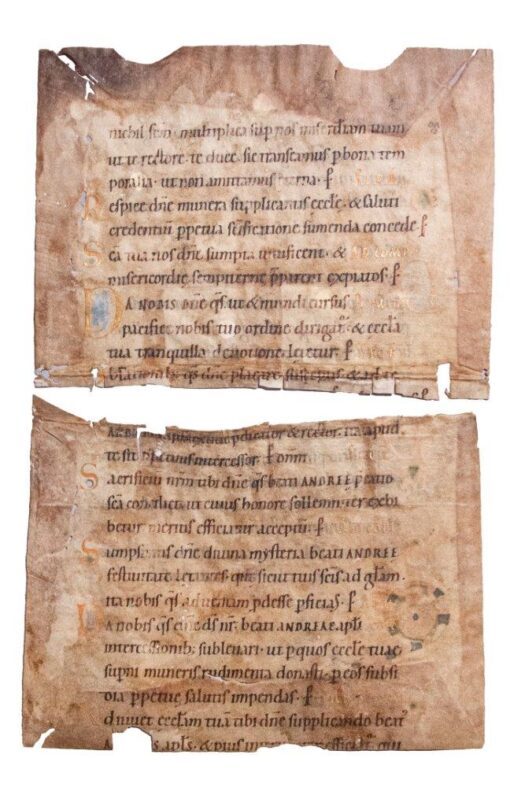 nichil sc̄m. multiplica sup nos miscđiam tuam
ut te rectore te duce. sic transeamus p bona tem
poralia. ut non amittamus etерna. ꝑ
espice dn̄e munera supplicantis eccl̄e. & saluti
credentiū ppetua sc̄ificatione sumenda concede
c̄a tua nos dn̄e sumpta uiuificent. &
misericordie sempiterne pparent expiatos.
A NOBIS dn̄e q̄s ut & mundi cursus
pacifice nobis tuo ordine dirigat᷑. & eccl̄a
tua tranquilla deuotione letetur
q̄s dn̄e placare susceptis. & ad te
predicator & rector. ita apud.
te sit perpetuus intercessor.
acrificiū nr̄m tibi dn̄e q̄s beati ANDREE pcatio
sc̄a conciliet. ut cuius honore sollemniter exhi
betur meritis efficiatur acceptū.
umpsimus dn̄e diuina mysteria beati ANDREE
festiuitate letantes. que sicut tuis sc̄is ad gl̄am.
ita nobis q̄s ad ueniam pdesse pficias.
a nobis q̄s dn̄e ds̄ nr̄. beati ANDREAE apl̄i
intercessionib; subleuari. ut p quos eccl̄e tuae
supni muneris rudimenta donasti. p eos subsi
dia ppetue salutis impendas.
diuuet eccl̄am tuā tibi dn̄e supplicando beat᷑
apl̄s. & pius